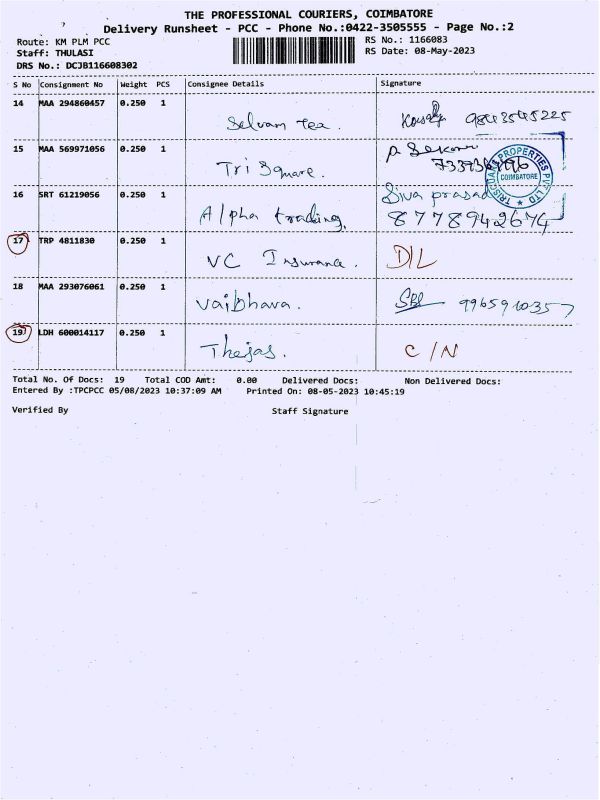 THE PROFESSIONAL COURIERS, COIMBATORE
Delivery Runsheet - PCC - Phone No.:0422-3505555 - Page No.:2
Route: KM PLM PCC
Staff: THULASI
DRS No.: DCJB116608302
RS No.: 1166083
RS Date: 08-May-2023
S No Consignment No Weight PCS Consignee Details Signature
14 MAA 294860457 0.250 1 Selvam Tea. 9843545225
15 MAA 569971056 0.250 1 Tri Square.
PROPERTIES PVT LTD
COIMBATORE
16 SRT 61219056 0.250 1 Alpha trading. Siva prasad
8778942674
17 TRP 4811830 0.250 1 VC Insurance. D/L
18 MAA 293076061 0.250 1 Vaibhava.
19 LDH 600014117 0.250 1 Thejas. C/N
Total No. Of Docs: 19 Total COD Amt: 0.00 Delivered Docs: Non Delivered Docs:
Entered By :TPCPCC 05/08/2023 10:37:09 AM Printed On: 08-05-2023 10:45:19
Verified By Staff Signature